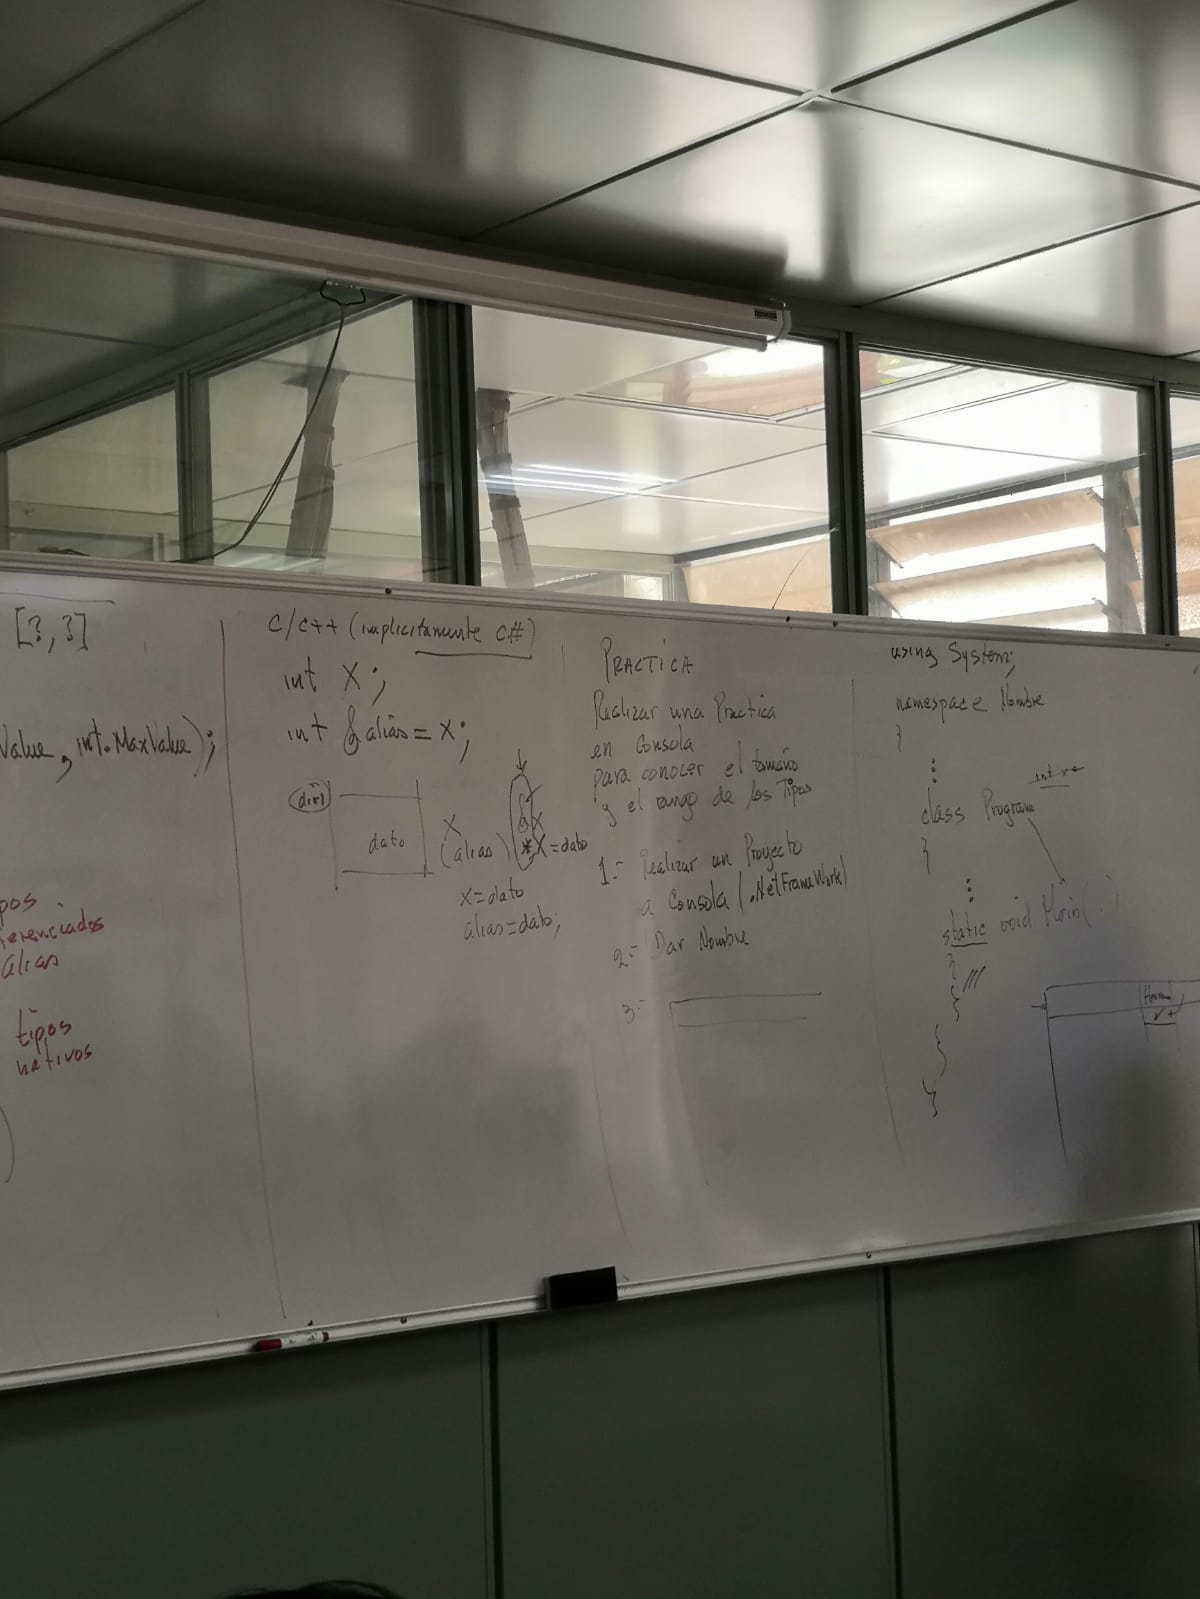 [?,?]
Value, int.MaxValue);
pos
erenciados
alias
tipos
nativos
C/C++ (implicitamente C#)
int X;
int &alias = x;
dir1
dato
X
(alias)
&X
*X = dato
X = dato
alias = dato;
PRACTICA
Realizar una Practica
en Consola
para conocer el tamaño
y el rango de los Tipos
1.- Realizar un Proyecto
a Consola (.NetFrameWork)
2.- Dar Nombre
3.-
using System;
namespace Nombre
{
class Program
{
static void Main( . )
{
}
}
}